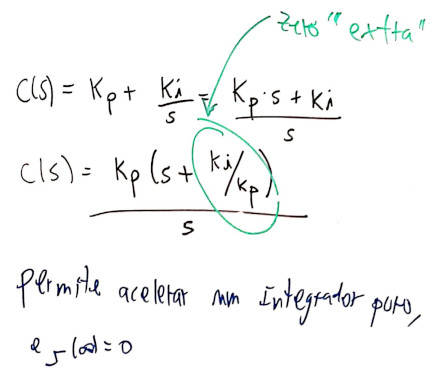 zero "extra"
C(s) = Kp + Ki/s = Kp·s + Ki/s
C(s) = Kp(s + Ki/Kp)/s
permite acelerar um integrador puro,
e_s(∞) = 0